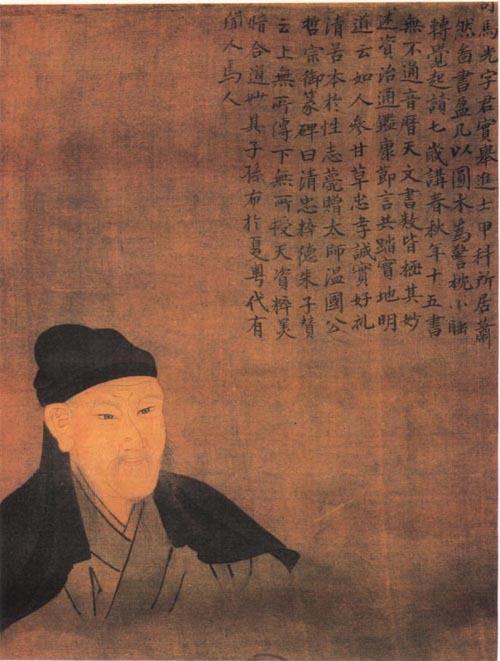 司馬光字君實舉進士甲科所居蕭
然啚書盈几以圓木為警枕小睡
轉覺起讀七歲講春秋年十五書
無不通音曆天文書數皆極其妙
述資治通鑑康節言其踏實地明
道云如人參甘草忠孝誠實好礼
清苦本於性志薨贈太師溫國公
哲宗御篆碑曰清忠粹德朱子贊
云上無所傳下無所授天資粹美
暗合道妙其子孫布於夏粤代有
人焉人